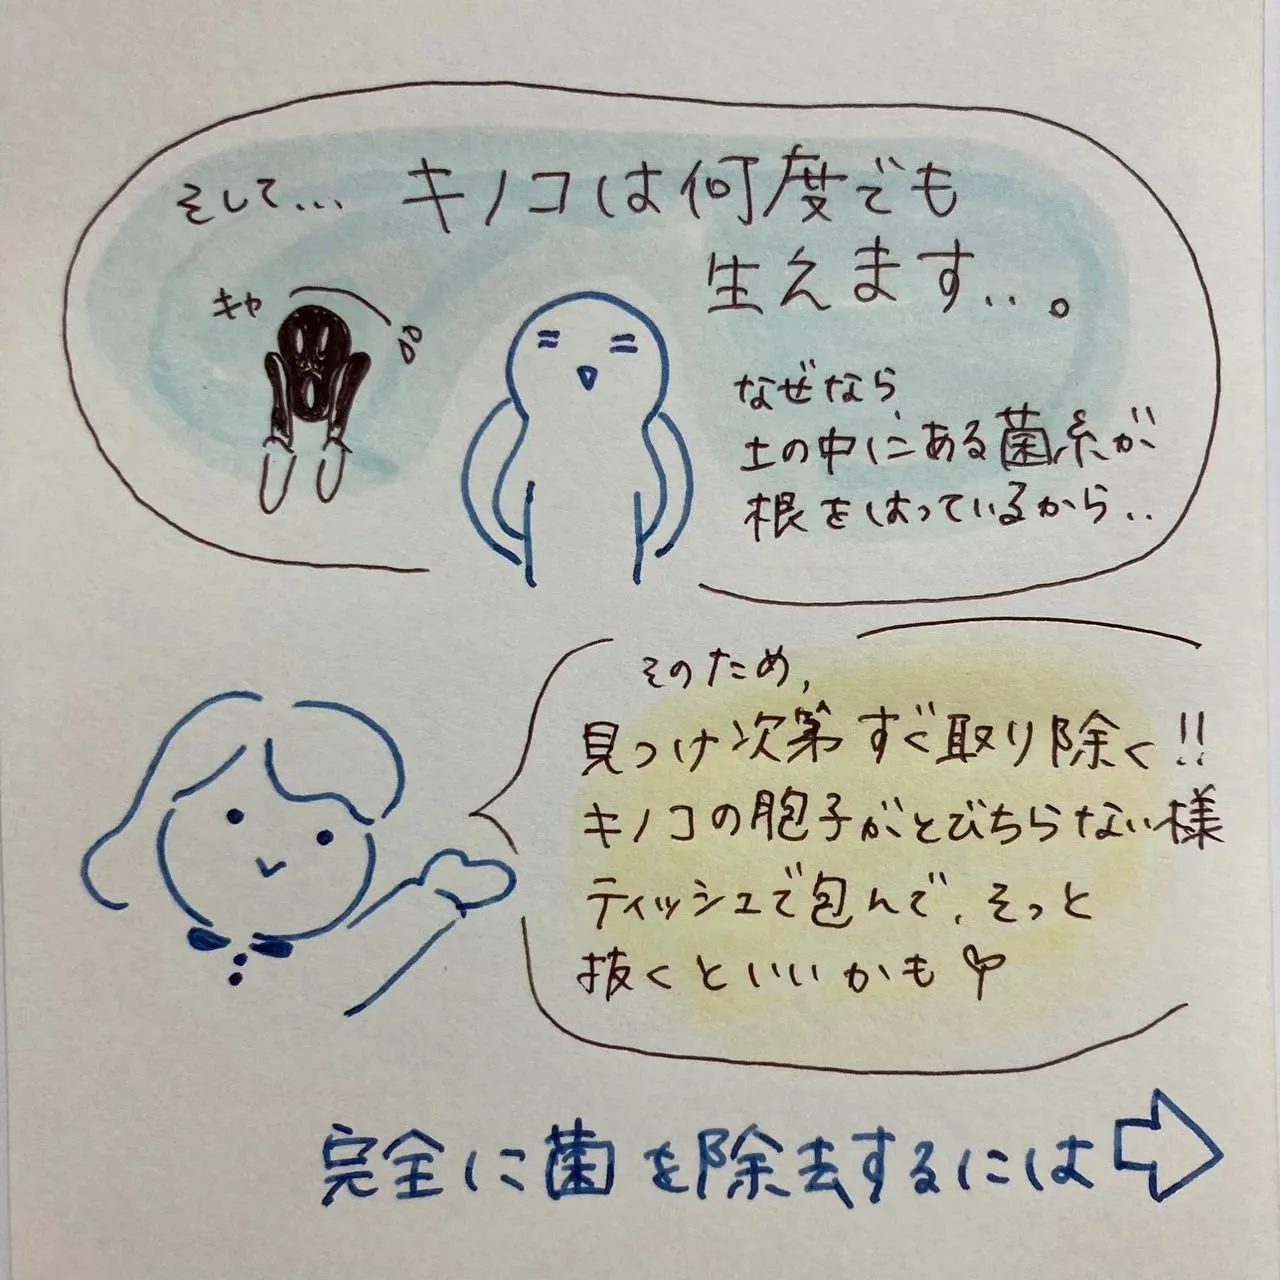 そして… キノコは何度でも
生えます…。
キャ
なぜなら
土の中にある菌糸が
根をはっているから‥
そのため,
見つけ次第すぐ取り除く!!
キノコの胞子がとびちらない様
ティッシュで包んで、そっと
抜くといいかも♡
完全に菌を除去するには